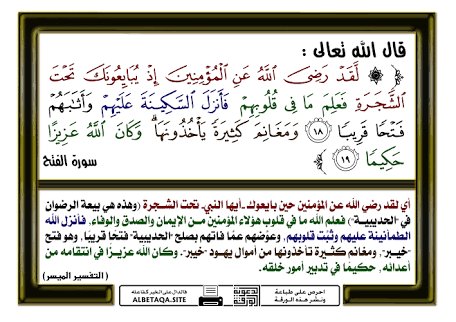 قال الله تعالى :
﴿ ۞ لَّقَدْ رَضِيَ اللَّهُ عَنِ الْمُؤْمِنِينَ إِذْ يُبَايِعُونَكَ تَحْتَ
الشَّجَرَةِ فَعَلِمَ مَا فِي قُلُوبِهِمْ فَأَنزَلَ السَّكِينَةَ عَلَيْهِمْ وَأَثَابَهُمْ
فَتْحًا قَرِيبًا ١٨ وَمَغَانِمَ كَثِيرَةً يَأْخُذُونَهَا ۗ وَكَانَ اللَّهُ عَزِيزًا
حَكِيمًا ١٩ ﴾ سورة الفتح
أي لقد رضي الله عن المؤمنين حين بايعوك ـ أيها النبي ـ تحت الشجرة (وهذه هي بيعة الرضوان
في "الحديبية") فعلم الله ما في قلوب هؤلاء المؤمنين من الإيمان والصدق والوفاء، فأنزل الله
الطمأنينة عليهم وثبَّت قلوبهم، وعوَّضهم عمَّا فاتهم بصلح "الحديبية" فتحًا قريبًا، وهو فتح
"خيبر"، ومغانم كثيرة تأخذونها من أموال يهود "خيبر". وكان الله عزيزًا في انتقامه من
أعدائه، حكيمًا في تدبير أمور خلقه.
(التفسير الميسر)
فالدال على الخير كفاعله
ALBETAQA.SITE
دعوية
الورقة
احرص على طباعة
ونشر هذه الورقة